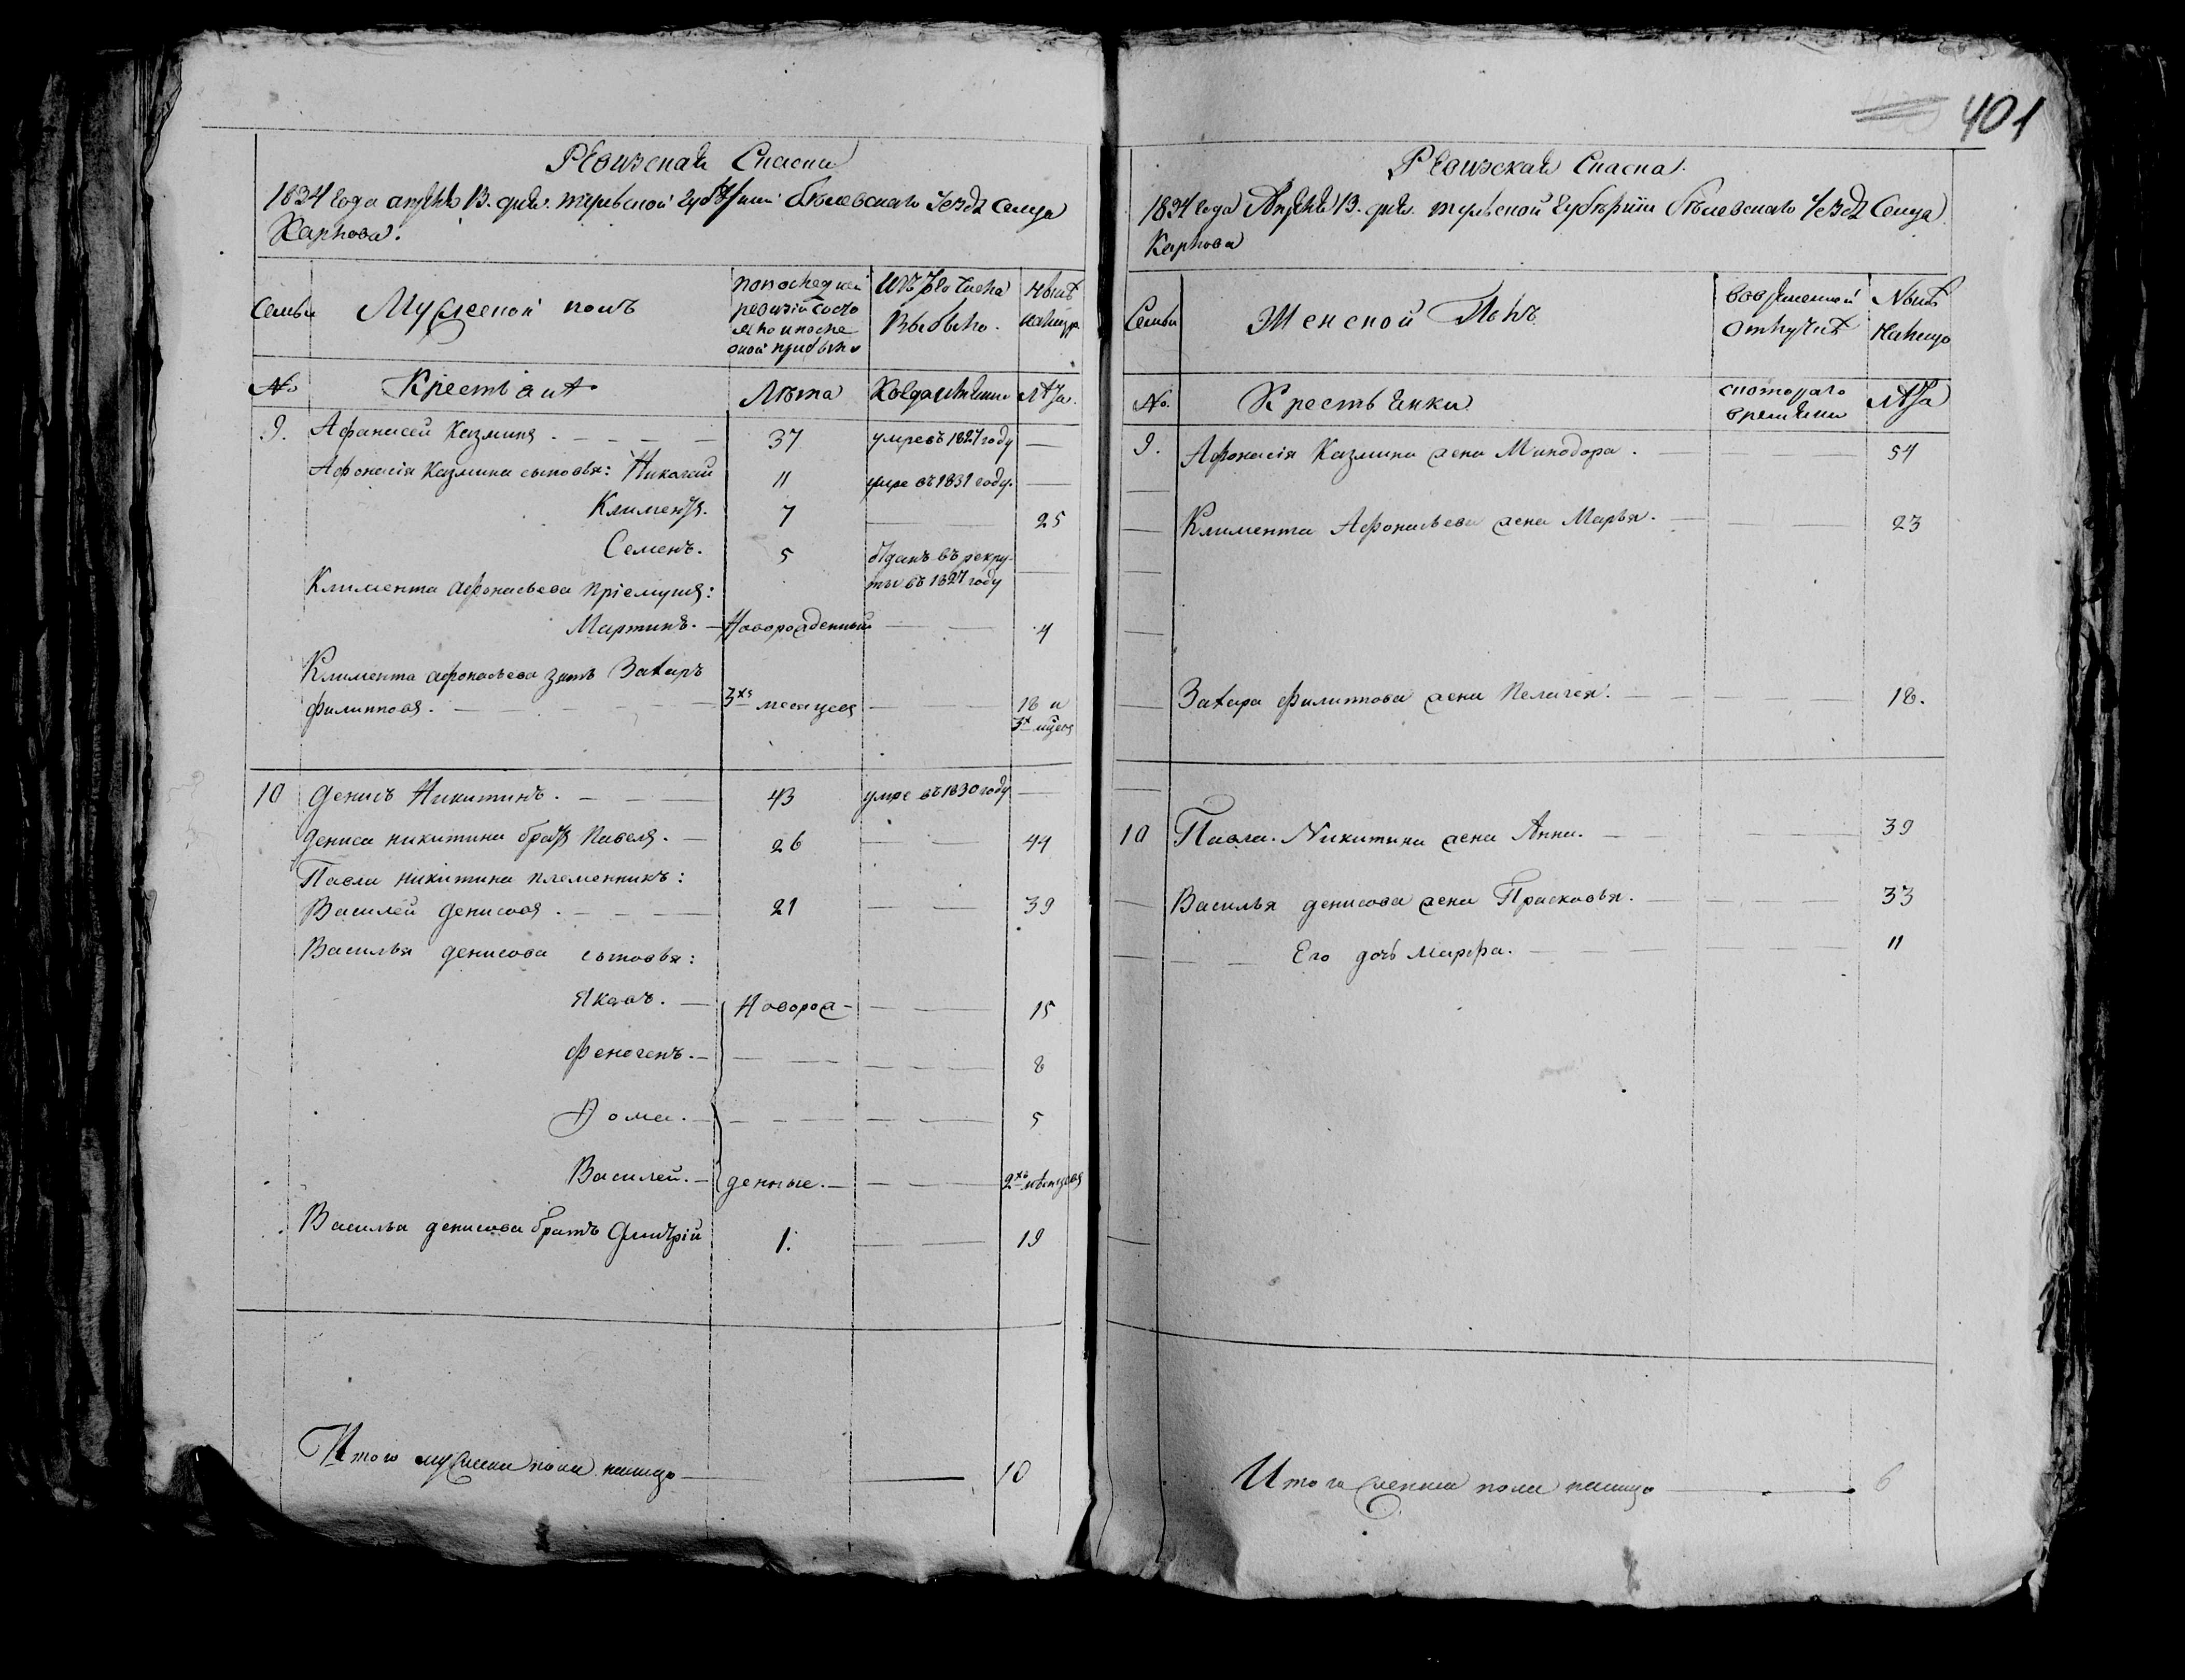 401
Ревизская Сказка
1834 года апреля 13. дня. тульской губернии белевскаго уезда Сельца
Карпова.
Семьи
Мужеской полъ
по последней
ревизiи состо
яло и после
оной прибыло
Изъ того числа
Выбыло.
Ныне
налицо
№
Крестьяне
Лета
Когда именно
Лета.
9. Афанасей Казминъ. 37 умре въ 1827 году
Афонасiя Казмина сыновья: Николай 11 умре въ 1831 году.
Климентъ. 7 25
Семенъ. 5 отданъ въ рекру-
ты въ 1827 году
Климента Афонасьева прiемышъ:
Мартинъ. Новорожденный 4
Климента афонасьева зять Захаръ
филипповъ. 3хъ месяцевъ 18 и
3х мцевъ
10 Денисъ Никитинъ. 43 умре въ 1830 году
Дениса никитина братъ Павелъ. 26 44
Павла никитина племенникъ:
Василей денисовъ. 21 39
Василья денисова сыновья:
Яковъ. Новорож- 15
Феногенъ. 8
Фома. 5
Василей. денные. 2хъ месяцовъ
Василья денисова братъ Дмитрiй 1. 19
Итого мужеска пола налицо 10
Ревизская Сказка.
1834 года Апреля 13. дня. тульской губернiи белевскаго уезда Сельца
Карпова
Семьи
Женской Полъ
Во временной
отлучке
Ныне
налицо
№.
Крестьянки
с котораго
времени
Лета
9. Афонасiя Казмина жена Минодора. 54
Климента Афонасьева жена Марья. 23
Захара филиппова жена Пелагея. 18.
10 Павла Никитина жена Анна. 39
Василья денисова жена Прасковья. 33
Его дочь Марфа. 11
Итого женска пола налицо 6